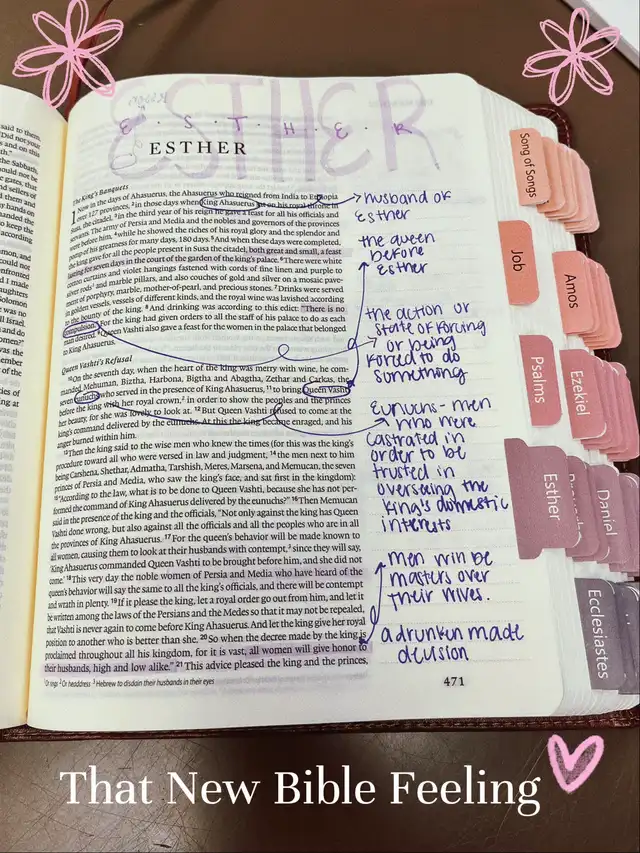 said to them,
Did not your
and on this
th."
the Sabbath,
gates, that
and sellers of
ESTHER
E · S · T · H · E · R
ESTHER
The King's Banquets
1 Now in the days of Ahasuerus, the Ahasuerus who reigned from India to Ethiopia
over 127 provinces, 2 in those days when King Ahasuerus sat on his royal throne in
Susa, the citadel, 3 in the third year of his reign he gave a feast for all his officials and
servants. The army of Persia and Media and the nobles and governors of the provinces
were before him, 4 while he showed the riches of his royal glory and the splendor and
pomp of his greatness for many days, 180 days. 5 And when these days were completed,
the king gave for all the people present in Susa the citadel, both great and small, a feast
lasting for seven days in the court of the garden of the king's palace. 6 There were white
cotton curtains and violet hangings fastened with cords of fine linen and purple to
silver rods1 and marble pillars, and also couches of gold and silver on a mosaic pave-
ment of porphyry, marble, mother-of-pearl, and precious stones. 7 Drinks were served
in golden vessels, vessels of different kinds, and the royal wine was lavished according
to the bounty of the king. 8 And drinking was according to this edict: "There is no
compulsion." For the king had given orders to all the staff of his palace to do as each
man desired. 9 Queen Vashti also gave a feast for the women in the palace that belonged
to King Ahasuerus.
Queen Vashti's Refusal
10 On the seventh day, when the heart of the king was merry with wine, he com-
manded Mehuman, Biztha, Harbona, Bigtha and Abagtha, Zethar and Carkas, the
seven eunuchs who served in the presence of King Ahasuerus, 11 to bring Queen Vashti
before the king with her royal crown,2 in order to show the peoples and the princes
her beauty, for she was lovely to look at. 12 But Queen Vashti refused to come at the
king's command delivered by the eunuchs. At this the king became enraged, and his
anger burned within him.
13 Then the king said to the wise men who knew the times (for this was the king's
procedure toward all who were versed in law and judgment, 14 the men next to him
being Carshena, Shethar, Admatha, Tarshish, Meres, Marsena, and Memucan, the seven
princes of Persia and Media, who saw the king's face, and sat first in the kingdom):
15 "According to the law, what is to be done to Queen Vashti, because she has not per-
formed the command of King Ahasuerus delivered by the eunuchs?" 16 Then Memucan
said in the presence of the king and the officials, "Not only against the king has Queen
Vashti done wrong, but also against all the officials and all the peoples who are in all
the provinces of King Ahasuerus. 17 For the queen's behavior will be made known to
all women, causing them to look at their husbands with contempt,3 since they will say,
'King Ahasuerus commanded Queen Vashti to be brought before him, and she did not
come.' 18 This very day the noble women of Persia and Media who have heard of the
queen's behavior will say the same to all the king's officials, and there will be contempt
and wrath in plenty. 19 If it please the king, let a royal order go out from him, and let it
be written among the laws of the Persians and the Medes so that it may not be repealed,
that Vashti is never again to come before King Ahasuerus. And let the king give her royal
position to another who is better than she. 20 So when the decree made by the king is
proclaimed throughout all his kingdom, for it is vast, all women will give honor to
their husbands, high and low alike." 21 This advice pleased the king and the princes,
1 Or rings 2 Or headdress 3 Hebrew to disdain their husbands in their eyes
471
husband of
Esther
the queen
before
Esther
the action or
state of forcing
or being
forced to do
something
Eunuchs - men
who were
castrated in
order to be
trusted in
overseeing the
king's domestic
interests
men will be
masters over
their wives.
a drunken made
decision
Song of Songs
Job
Amos
Psalms
Ezekiel
Esther
Daniel
Ecclesiastes
That New Bible Feeling